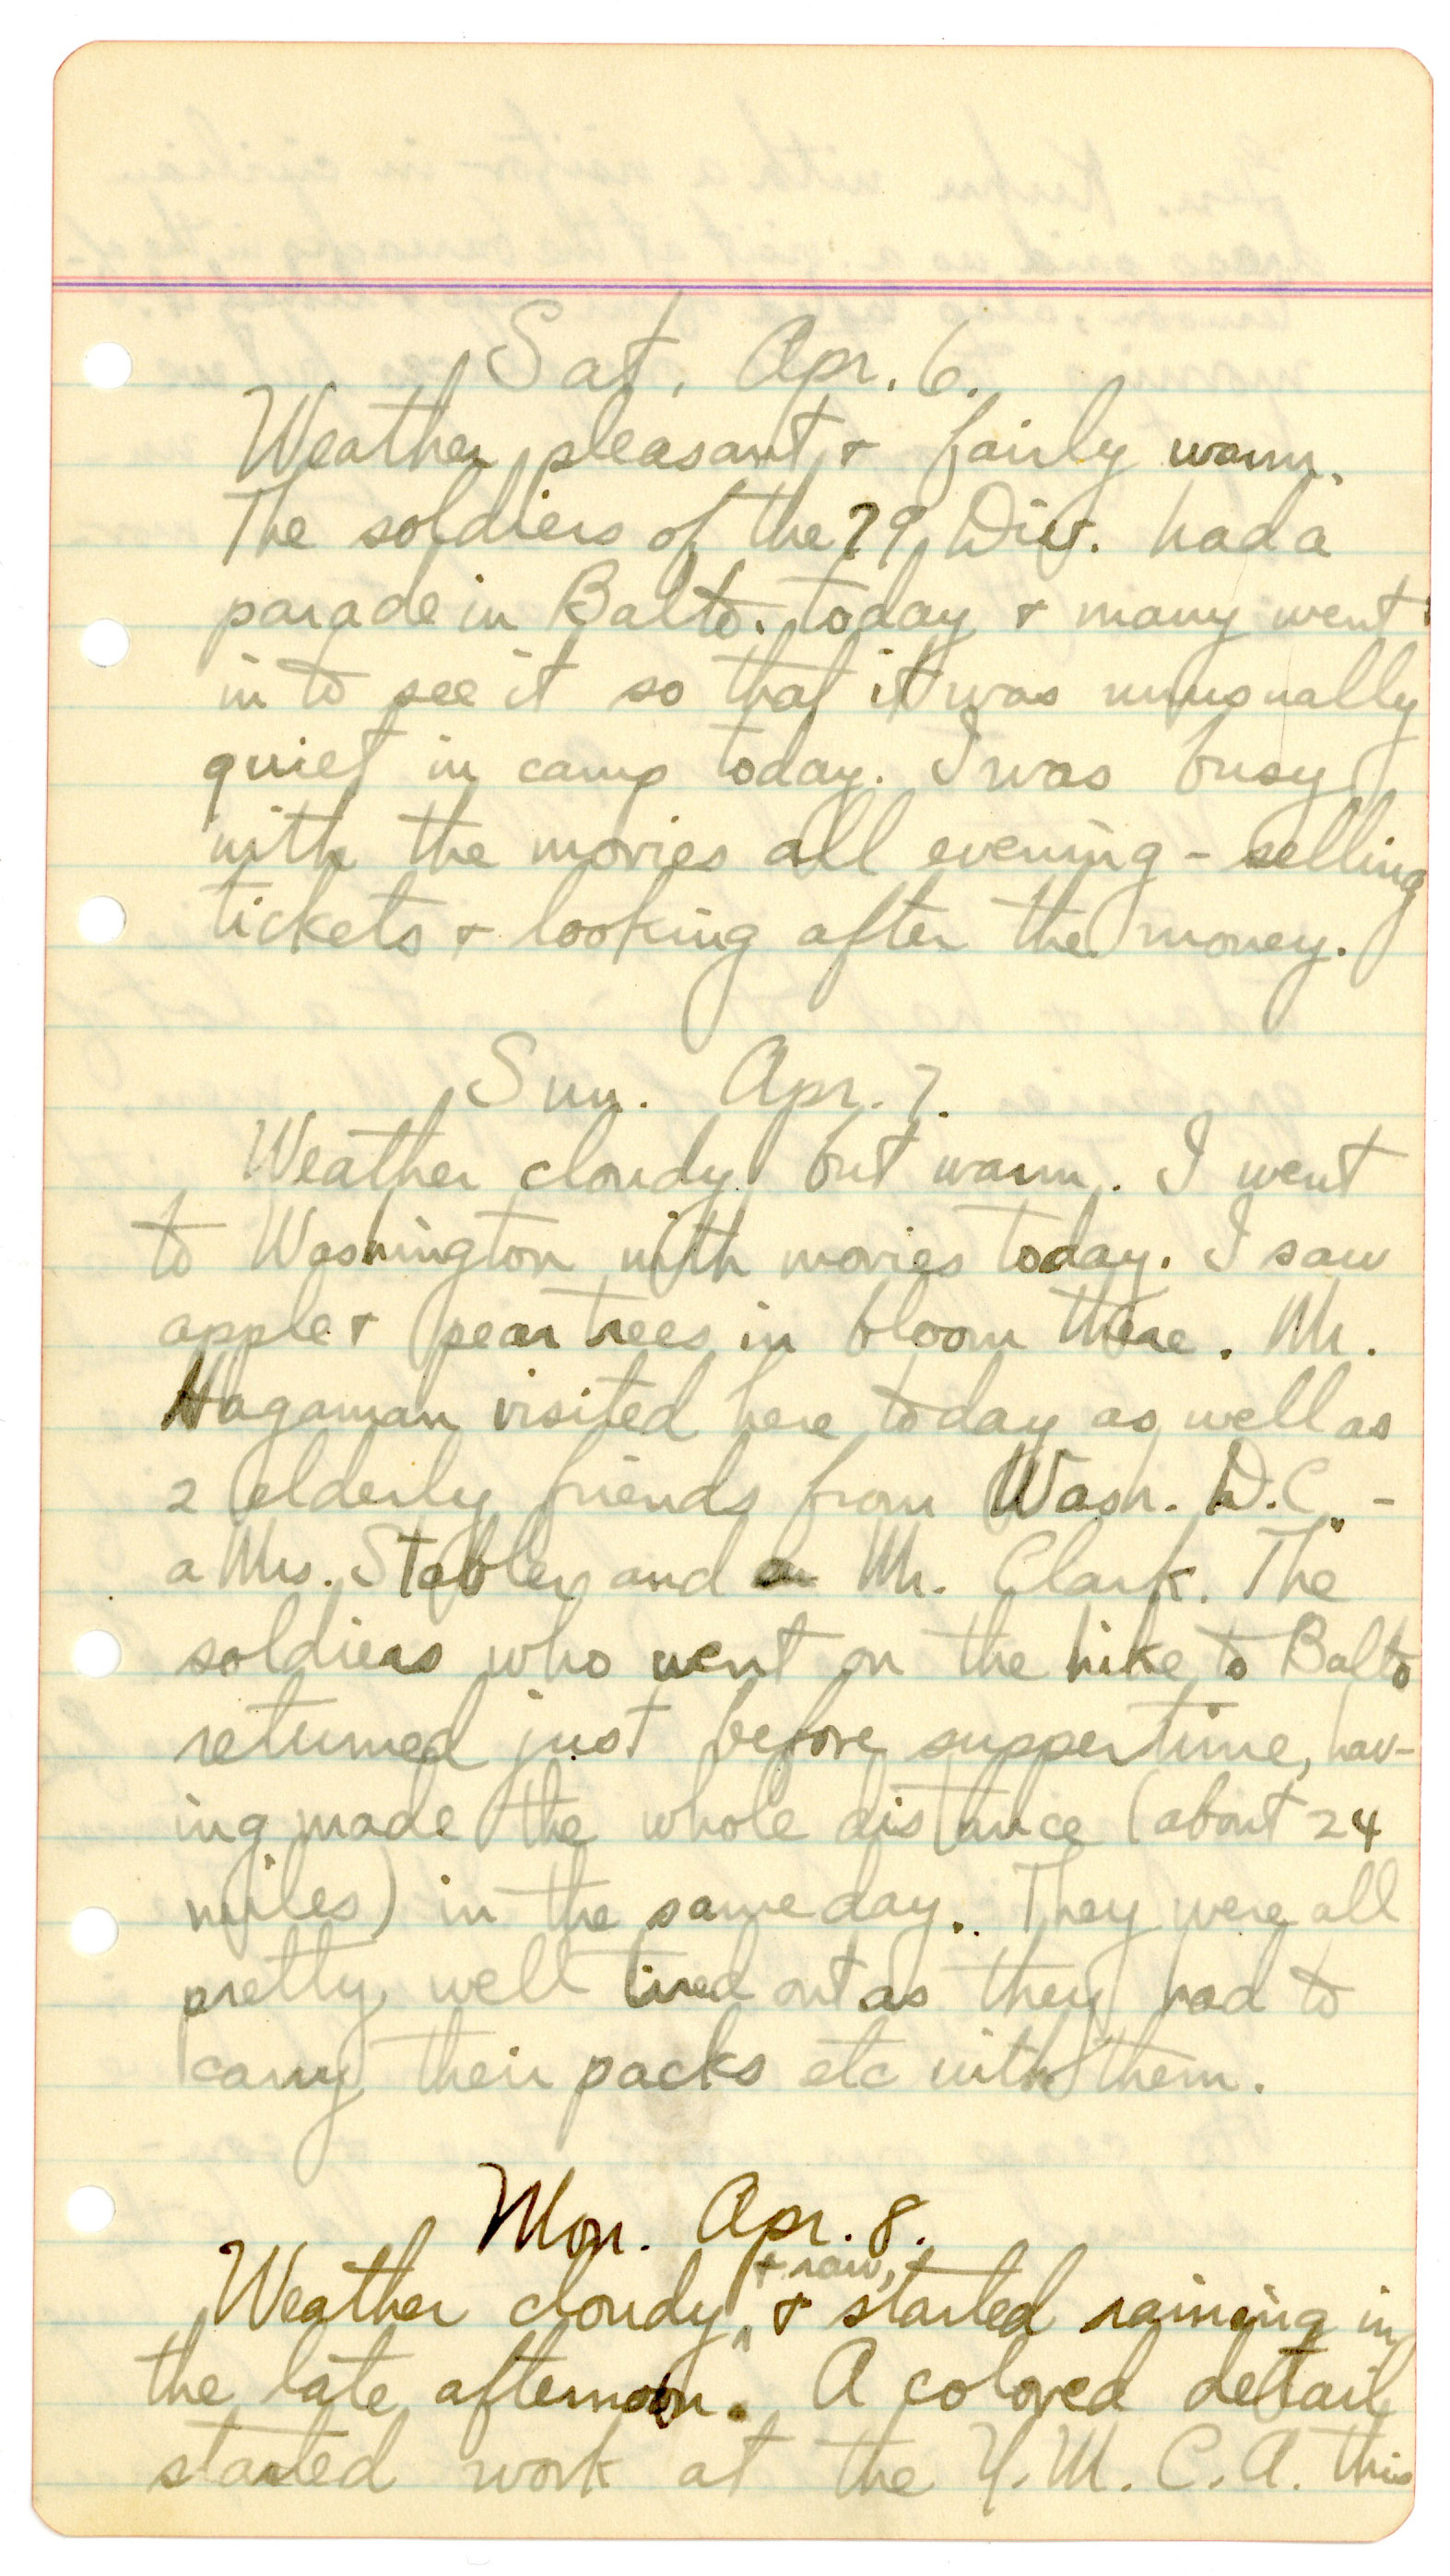 Sat. Apr. 6.
Weather pleasant & fairly warm.
The soldiers of the 79 Div. had a
parade in Balto. today & many went
in to see it so that it was unusually
quiet in camp today. I was busy
with the movies all evening - selling
tickets & looking after the money.
Sun. Apr. 7.
Weather cloudy but warm. I went
to Washington with movies today. I saw
apple & pear trees in bloom there. Mr.
Hagaman visited here today as well as
2 elderly friends from Wash. D.C. -
a Mrs. Stabler and a Mr. Clark. The
soldiers who went on the hike to Balto
returned just before suppertime, hav-
ing made the whole distance (about 24
miles) in the same day. They were all
pretty well tired out as they had to
carry their packs etc with them.
Mon. Apr. 8.
Weather cloudy & raw, & started raining in
the late afternoon. A colored detail
started work at the Y.M.C.A. this